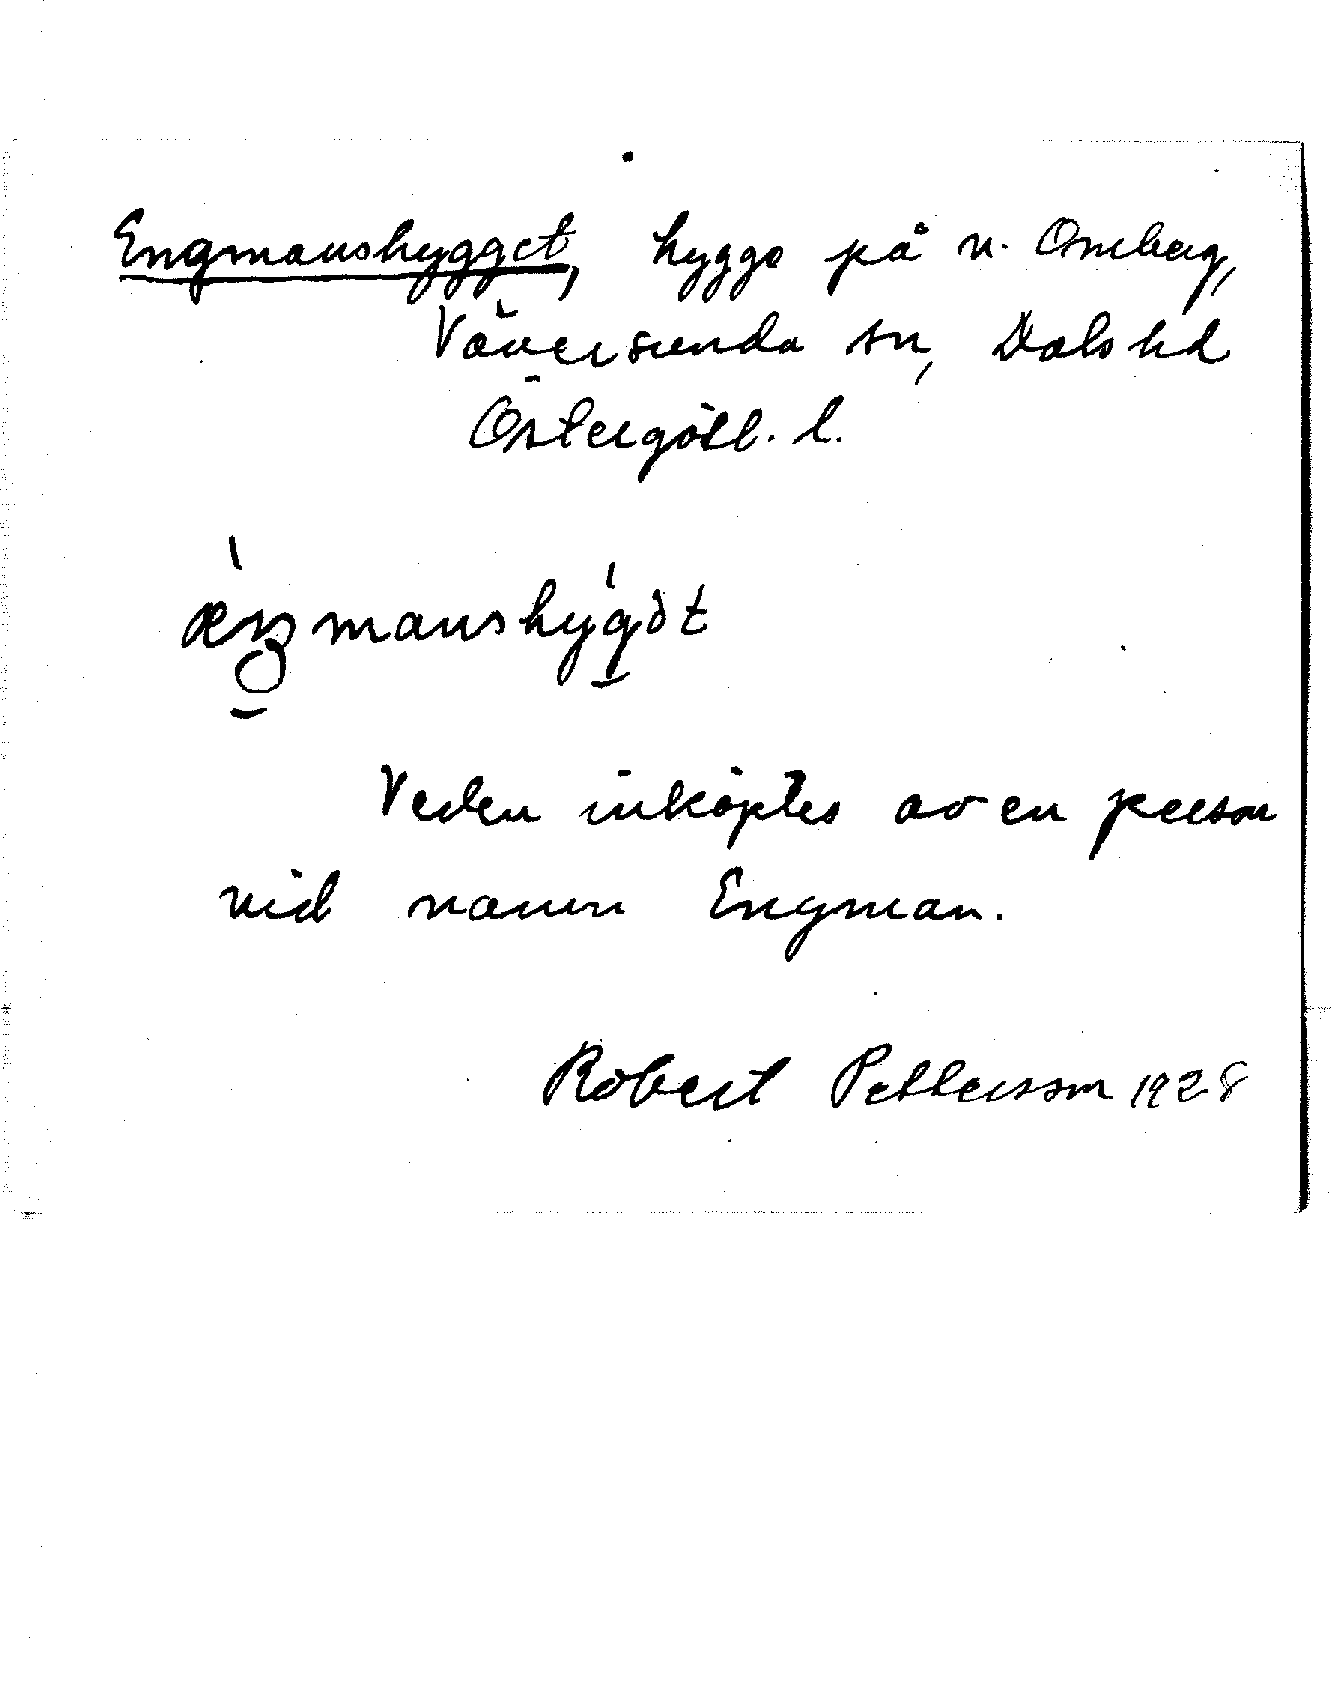 Engmanshygget, hygge på n. Omberg,
Väversunda sn, Dals hd
Östergötl. l.
æŋmanshýgət
Veden inköptes av en person
vid namn Engman.
Robert Pettersson 1928